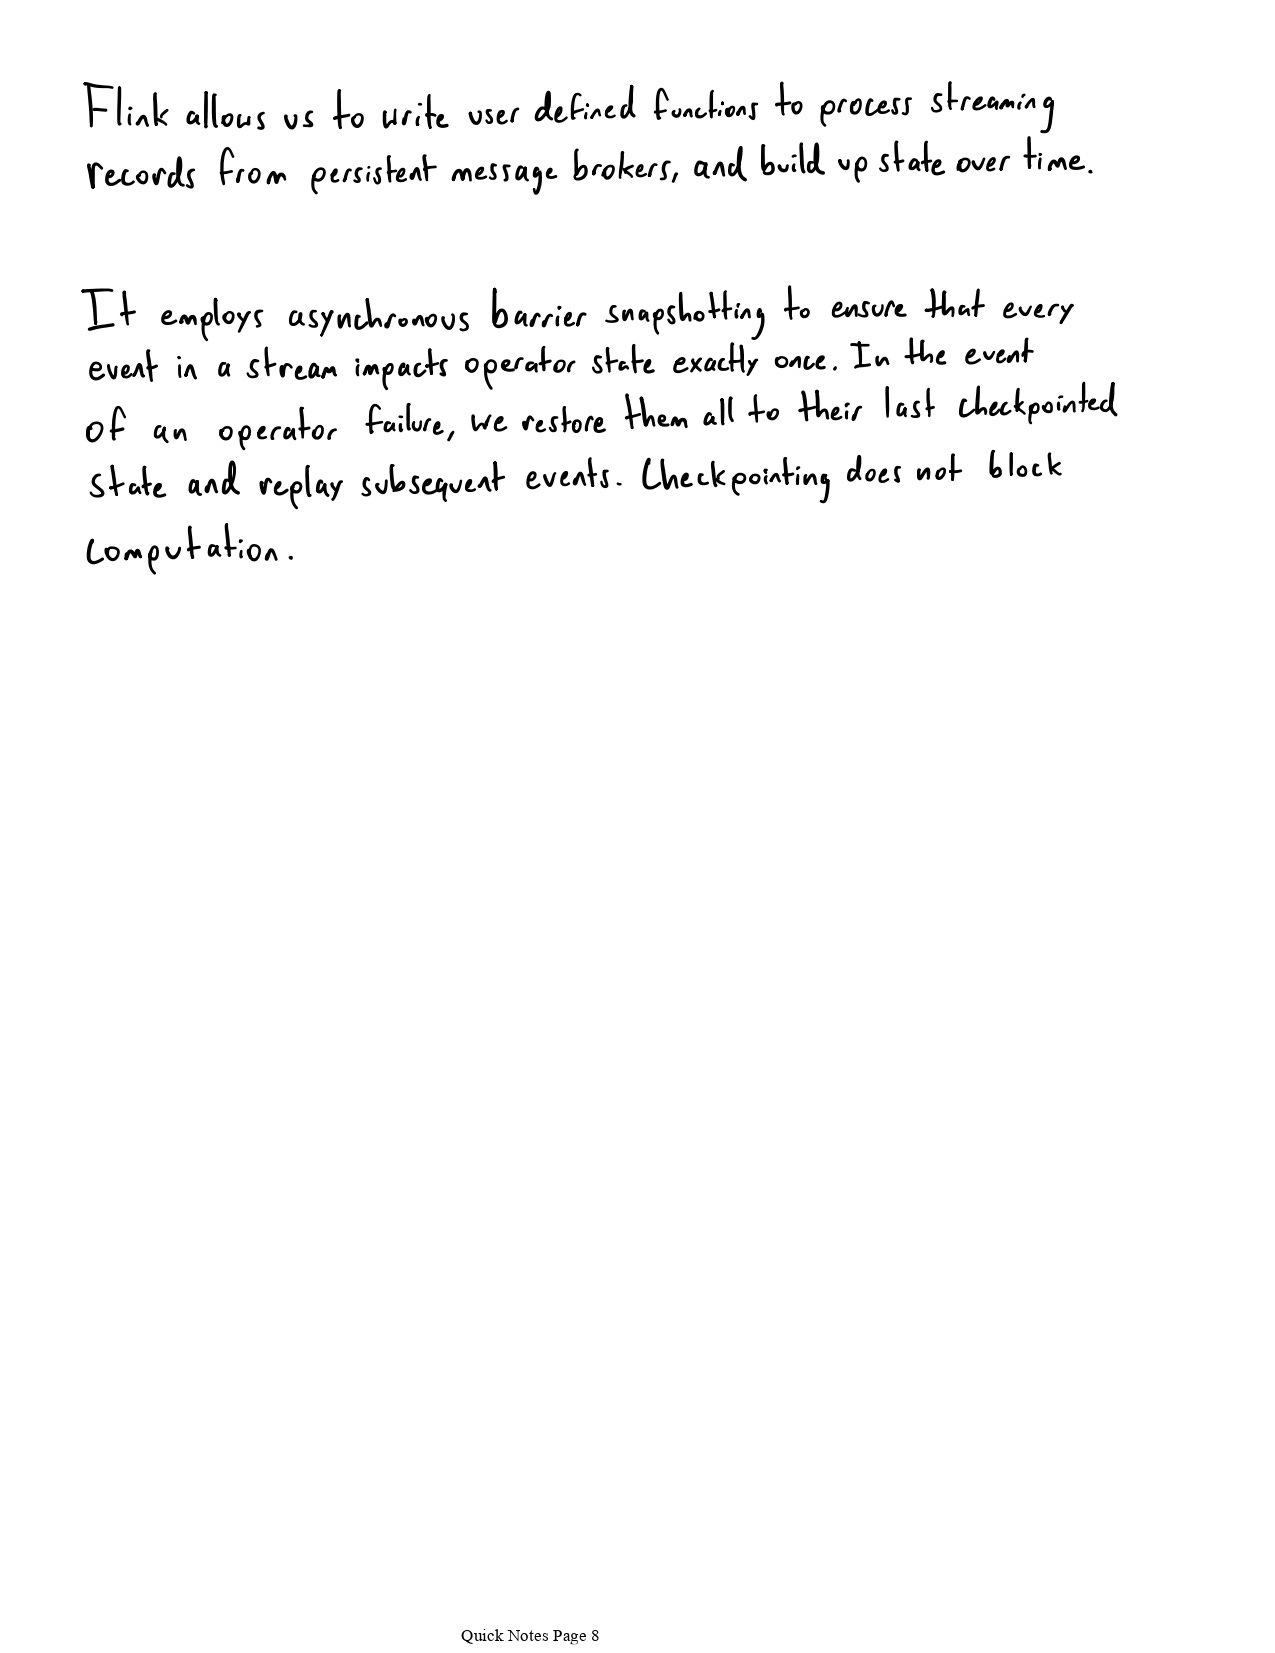 Flink allows us to write user defined functions to process streaming
records from persistent message brokers, and build up state over time.
It employs asynchronous barrier snapshotting to ensure that every
event in a stream impacts operator state exactly once. In the event
of an operator failure, we restore them all to their last checkpointed
state and replay subsequent events. Checkpointing does not block
computation.
Quick Notes Page 8